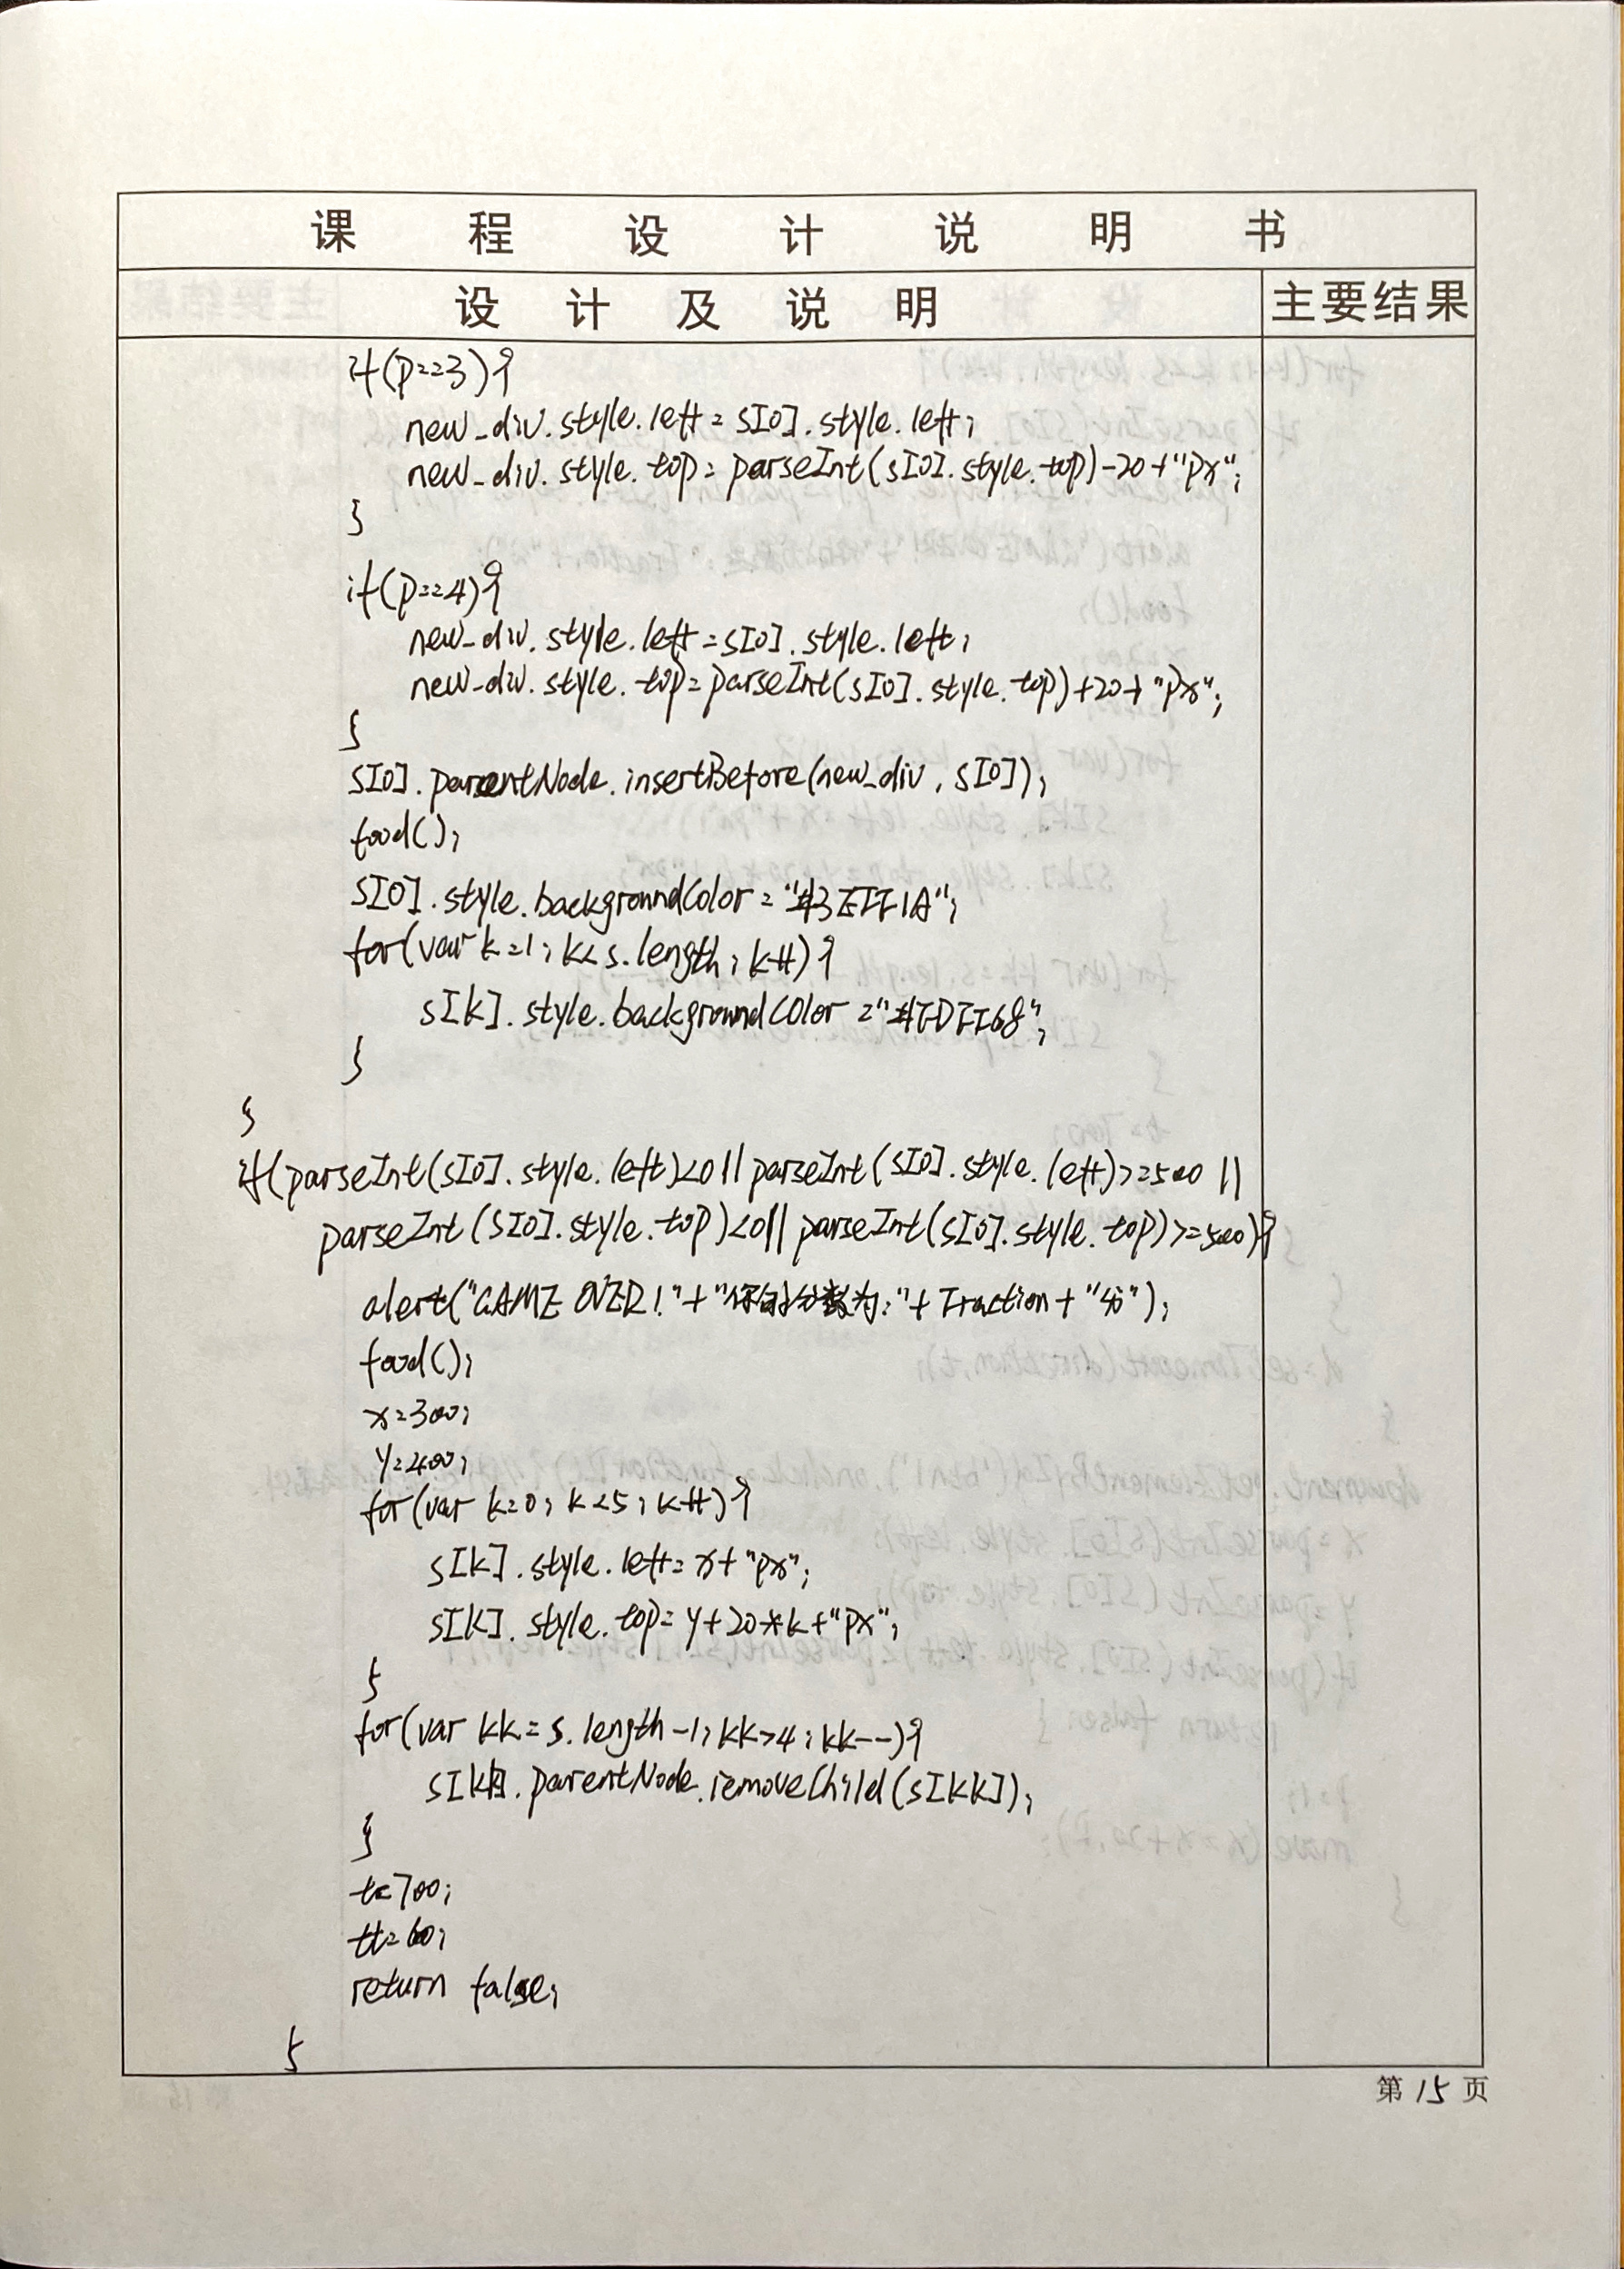 课程设计说明书
设计及说明 主要结果
if(p==3){
new_div.style.left=s[0].style.left;
new_div.style.top=parseInt(s[0].style.top)-20+"px";
}
if(p==4){
new_div.style.left=s[0].style.left;
new_div.style.top=parseInt(s[0].style.top)+20+"px";
}
s[0].parentNode.insertBefore(new_div,s[0]);
food();
s[0].style.backgroundColor="#3EFF1A";
for(var k=1;k<s.length;k++){
s[k].style.backgroundColor="#FDFF68";
}
}
if(parseInt(s[0].style.left)<0||parseInt(s[0].style.left)>=500||
parseInt(s[0].style.top)<0||parseInt(s[0].style.top)>=500){
alert("GAME OVER!"+"你的分数为:"+Fraction+"分");
food();
x=300;
y=400;
for(var k=0;k<5;k++){
s[k].style.left=x+"px";
s[k].style.top=y+20*k+"px";
}
for(var kk=s.length-1;kk>4;kk--){
s[kk].parentNode.removeChild(s[kk]);
}
t=700;
tt=60;
return false;
}
第15页